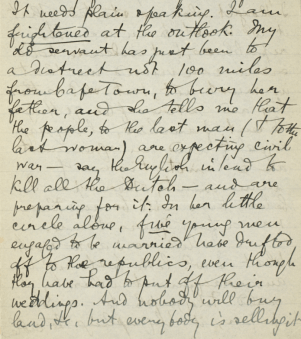 It needs plain speaking. I am
frightened at the outlook. My
old servant has just been to
a district not 100 miles
from Cape Town, to bury her
father, and she tells me that
the people, to the last man (& to the
last woman) are expecting civil
war – say the English intend to
kill all the Dutch – and are
preparing for it. In her little
circle alone, five young men
engaged to be married have drafted
off to the republics, even though
they have had to put off their
weddings. And nobody will buy
land, but everybody is selling it